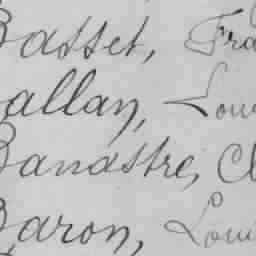 Basset, Fra
Ballan, Lou
Banastre, Cl
Baron, Loui